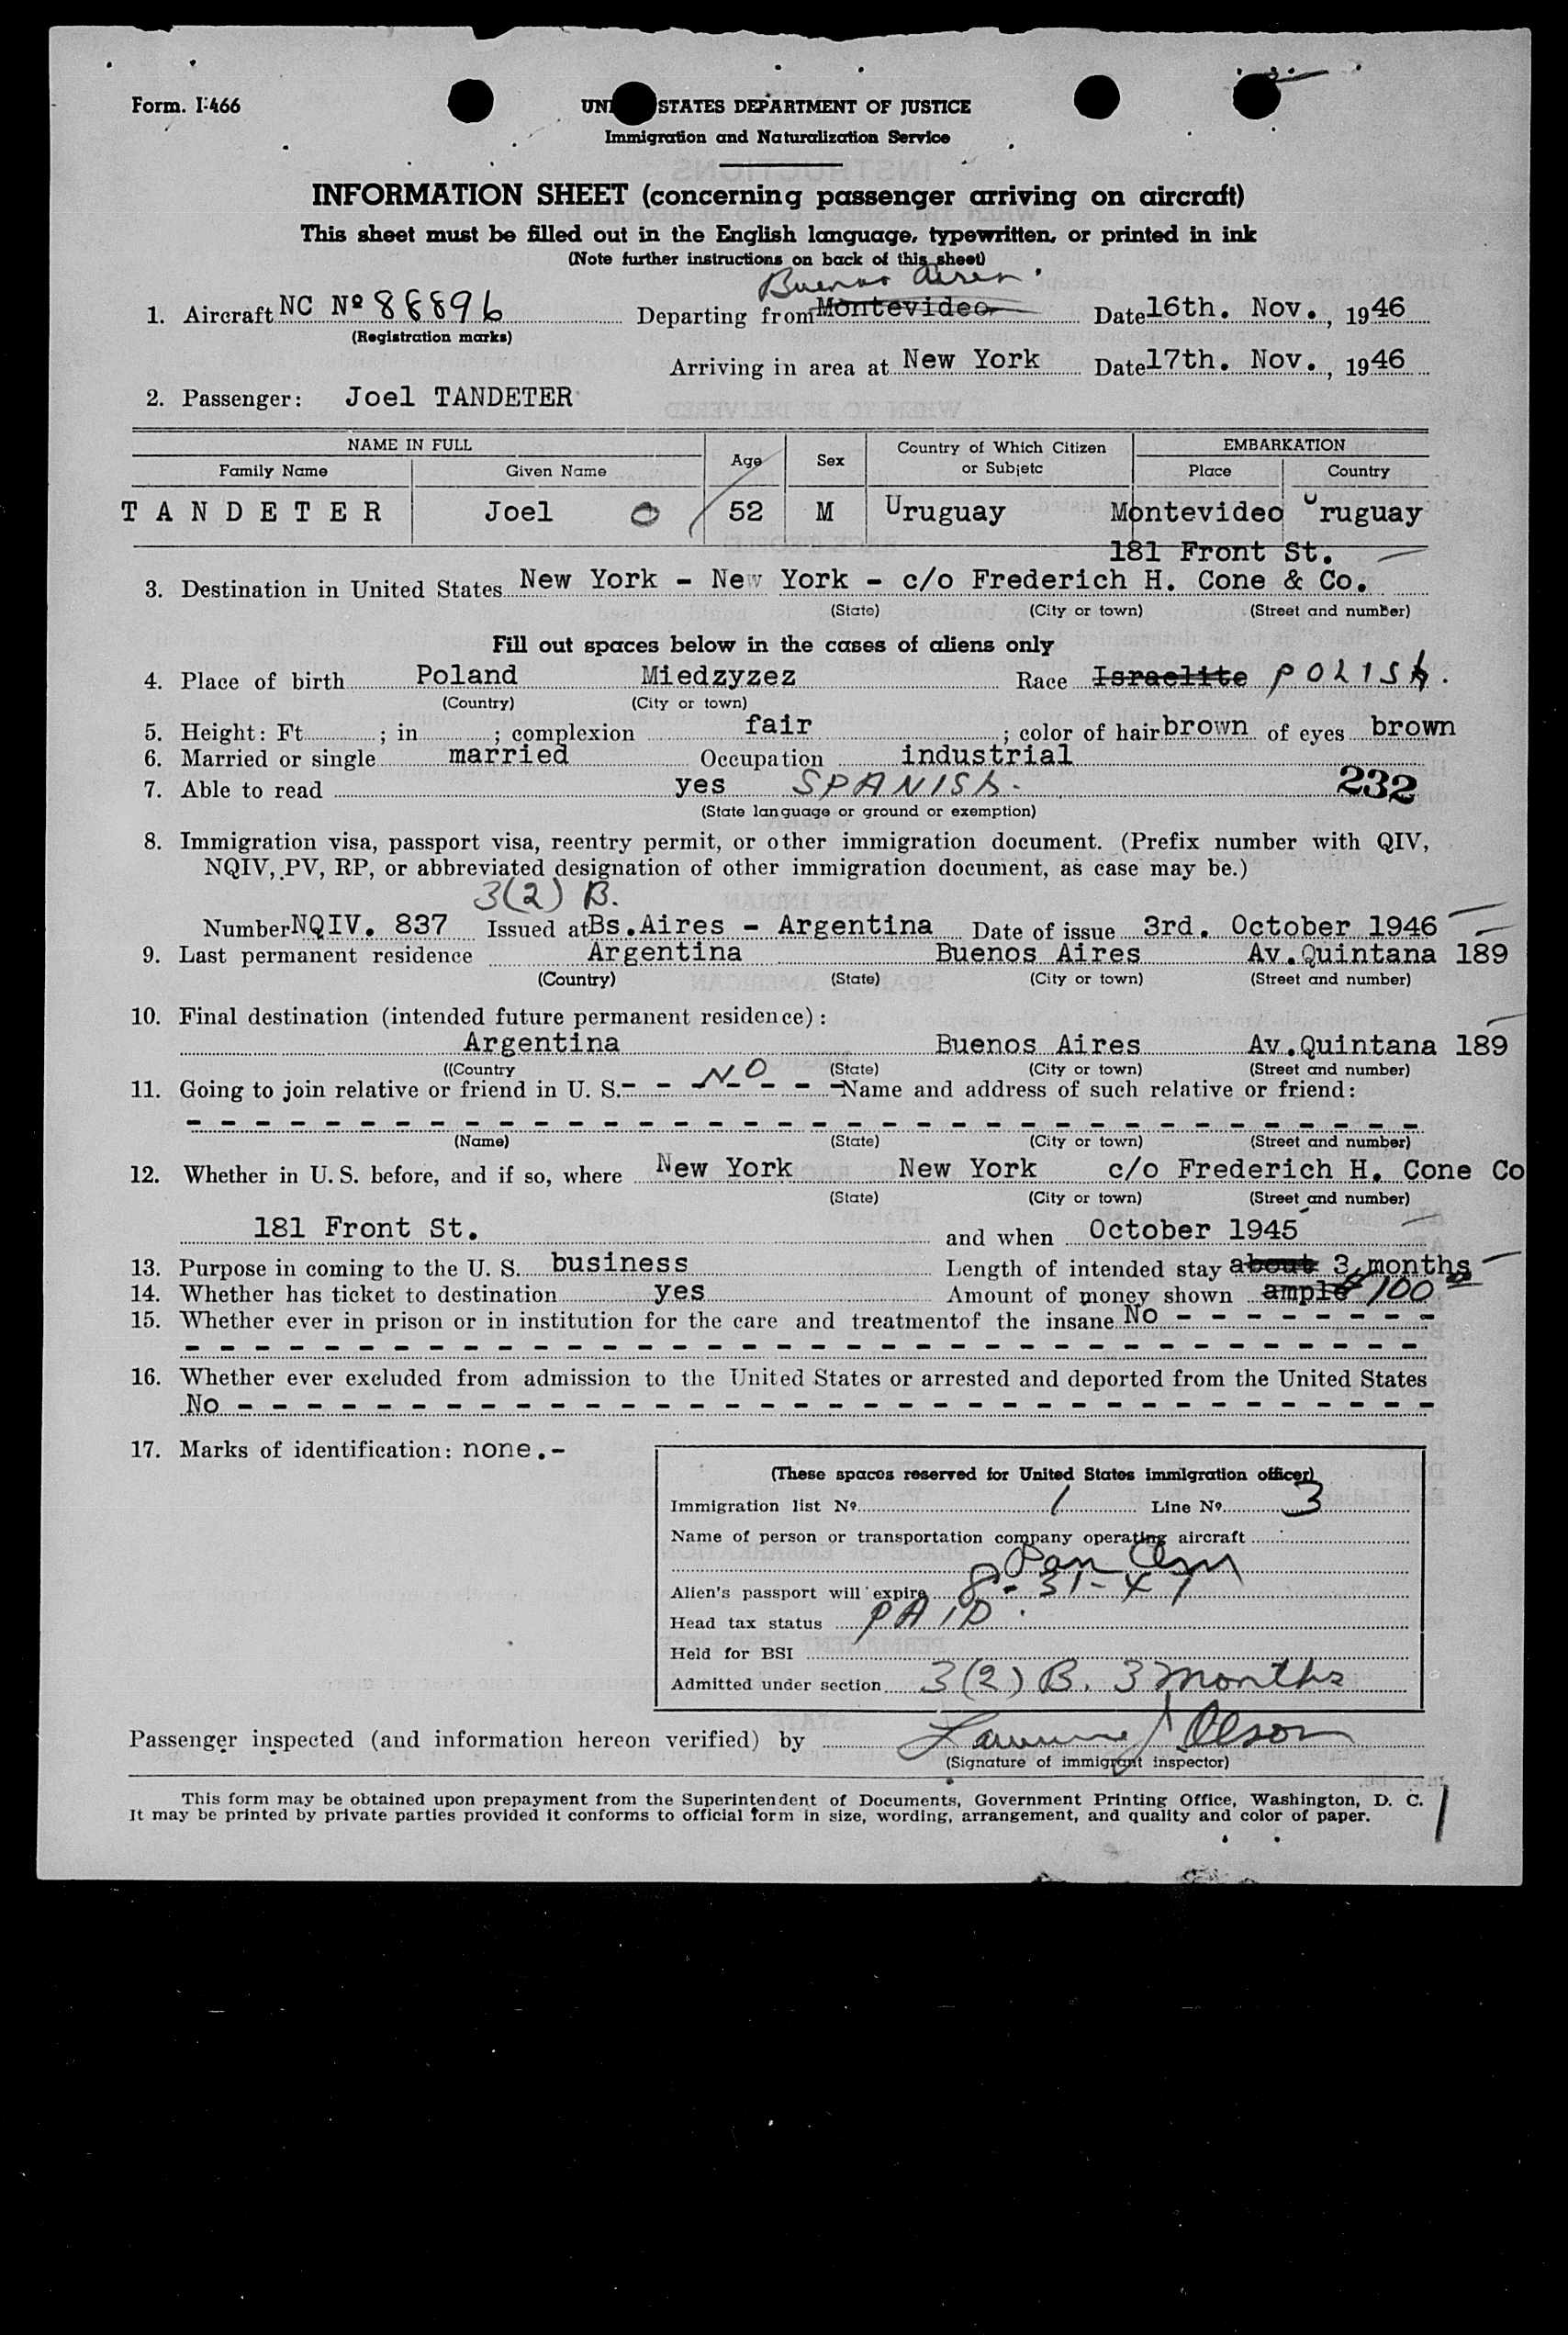 Form. I-466
UNI STATES DEPARTMENT OF JUSTICE
Immigration and Naturalization Service
INFORMATION SHEET (concerning passenger arriving on aircraft)
This sheet must be filled out in the English language, typewritten, or printed in ink
(Note further instructions on back of this sheet)
Buenos Aires
1. Aircraft NC Nº 88896 Departing from Montevideo Date 16th. Nov., 1946
(Registration marks)
Arriving in area at New York Date 17th. Nov., 1946
2. Passenger: Joel TANDETER
NAME IN FULL Age Sex Country of Which Citizen or Subjetc EMBARKATION
Family Name Given Name Place Country
TANDETER Joel O 52 M Uruguay Montevideo Uruguay
181 Front St.
3. Destination in United States New York - New York - c/o Frederich H. Cone & Co.
(State) (City or town) (Street and number)
Fill out spaces below in the cases of aliens only
4. Place of birth Poland Miedzyzez Race Israelite POLISh.
(Country) (City or town)
5. Height: Ft ; in ; complexion fair ; color of hair brown of eyes brown
6. Married or single married Occupation industrial
7. Able to read yes SPANISh. 232
(State language or ground or exemption)
8. Immigration visa, passport visa, reentry permit, or other immigration document. (Prefix number with QIV,
NQIV, PV, RP, or abbreviated designation of other immigration document, as case may be.)
3(2) B.
Number NQIV. 837 Issued at Bs.Aires - Argentina Date of issue 3rd. October 1946
9. Last permanent residence Argentina Buenos Aires Av.Quintana 189
(Country) (State) (City or town) (Street and number)
10. Final destination (intended future permanent residence):
Argentina Buenos Aires Av.Quintana 189
((Country (State) (City or town) (Street and number)
11. Going to join relative or friend in U. S. - - - NO - - - Name and address of such relative or friend:
(Name) (State) (City or town) (Street and number)
12. Whether in U. S. before, and if so, where New York New York c/o Frederich H. Cone Co
(State) (City or town) (Street and number)
181 Front St. and when October 1945
13. Purpose in coming to the U. S. business Length of intended stay about 3 months
14. Whether has ticket to destination yes Amount of money shown ample $100
15. Whether ever in prison or in institution for the care and treatmentof the insane No - - - - - - - -
16. Whether ever excluded from admission to the United States or arrested and deported from the United States
No - - - - - - - - - - - - - - - - - - - - - - - - - - - - - - - - - - -
17. Marks of identification: none.-
(These spaces reserved for United States immigration officer)
Immigration list Nº 1 Line Nº 3
Name of person or transportation company operating aircraft
Pan Am
Alien's passport will expire 8-31-47
Head tax status PAID.
Held for BSI
Admitted under section 3(2) B. 3 Months
Passenger inspected (and information hereon verified) by Lawrence J Olson
(Signature of immigrant inspector)
This form may be obtained upon prepayment from the Superintendent of Documents, Government Printing Office, Washington, D. C.
It may be printed by private parties provided it conforms to official form in size, wording, arrangement, and quality and color of paper.
1